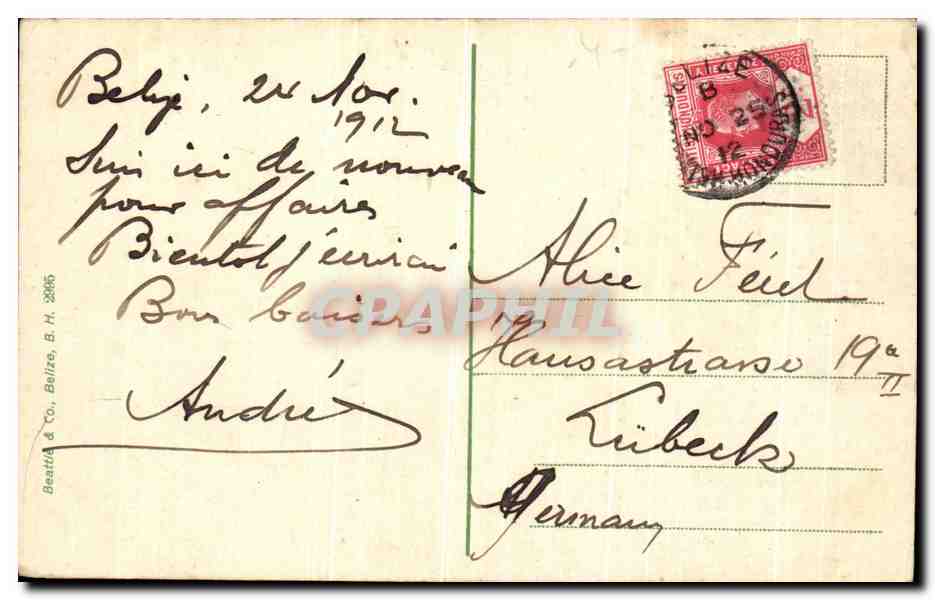 Belize, 24 Nov.
1912
Suis ici de nouveau
pour affaires
Bientot j'écrirai
Bons baisers
André
Alice Feid
Hansastrasse 19a
II
Lübeck
Germany
Beattie & Co., Belize, B. H. 2995
BELIZE
B
NO 25
12
BRITISH HONDURAS
CRAPHIL